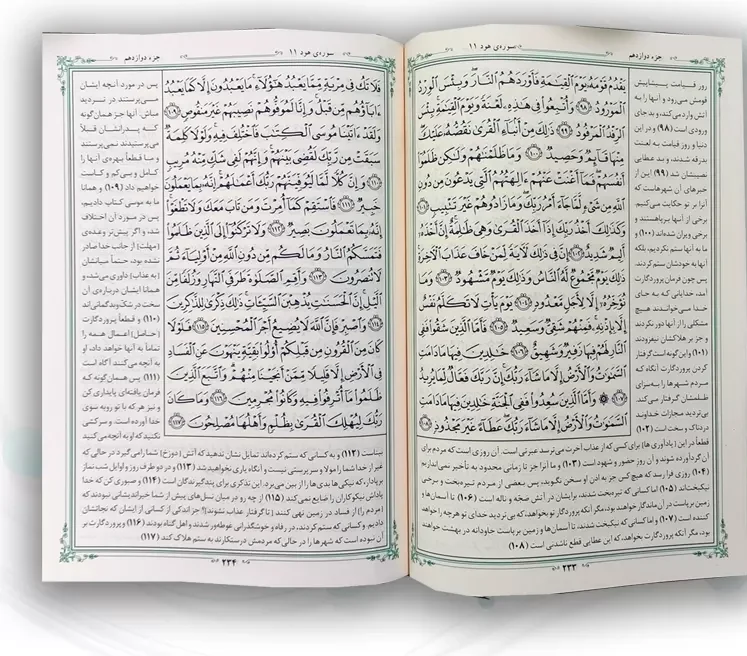 جزء دوازدهم
سوره‌ی هود ۱۱
يَقْدُمُ قَوْمَهُ يَوْمَ الْقِيٰمَةِ فَأَوْرَدَهُمُ النَّارَ وَبِئْسَ الْوِرْدُ
الْمَوْرُودُ ﴿٩٨﴾ وَأُتْبِعُوا فِي هٰذِهِ لَعْنَةً وَيَوْمَ الْقِيٰمَةِ بِئْسَ
الرِّفْدُ الْمَرْفُودُ ﴿٩٩﴾ ذٰلِكَ مِنْ أَنْبَاءِ الْقُرٰى نَقُصُّهُ عَلَيْكَ
مِنْهَا قَائِمٌ وَحَصِيدٌ ﴿١٠٠﴾ وَمَا ظَلَمْنٰهُمْ وَلٰكِنْ ظَلَمُوا
أَنْفُسَهُمْ فَمَا أَغْنَتْ عَنْهُمْ ءَالِهَتُهُمُ الَّتِي يَدْعُونَ مِنْ دُونِ
اللَّهِ مِنْ شَيْءٍ لَمَّا جَاءَ أَمْرُ رَبِّكَ وَمَا زَادُوهُمْ غَيْرَ تَتْبِيبٍ ﴿١٠١﴾
وَكَذٰلِكَ أَخْذُ رَبِّكَ إِذَا أَخَذَ الْقُرٰى وَهِيَ ظٰلِمَةٌ إِنَّ أَخْذَهُ
أَلِيمٌ شَدِيدٌ ﴿١٠٢﴾ إِنَّ فِي ذٰلِكَ لَآيَةً لِمَنْ خَافَ عَذَابَ الْآخِرَةِ
ذٰلِكَ يَوْمٌ مَجْمُوعٌ لَهُ النَّاسُ وَذٰلِكَ يَوْمٌ مَشْهُودٌ ﴿١٠٣﴾ وَمَا
نُؤَخِّرُهُ إِلَّا لِأَجَلٍ مَعْدُودٍ ﴿١٠٤﴾ يَوْمَ يَأْتِ لَا تَكَلَّمُ نَفْسٌ
إِلَّا بِإِذْنِهِ فَمِنْهُمْ شَقِيٌّ وَسَعِيدٌ ﴿١٠٥﴾ فَأَمَّا الَّذِينَ شَقُوا فَفِي
النَّارِ لَهُمْ فِيهَا زَفِيرٌ وَشَهِيقٌ ﴿١٠٦﴾ خٰلِدِينَ فِيهَا مَا دَامَتِ
السَّمٰوٰتُ وَالْأَرْضُ إِلَّا مَا شَاءَ رَبُّكَ إِنَّ رَبَّكَ فَعَّالٌ لِمَا يُرِيدُ
﴿١٠٧﴾ وَأَمَّا الَّذِينَ سُعِدُوا فَفِي الْجَنَّةِ خٰلِدِينَ فِيهَا مَا دَامَتِ
السَّمٰوٰتُ وَالْأَرْضُ إِلَّا مَا شَاءَ رَبُّكَ عَطَاءً غَيْرَ مَجْذُوذٍ ﴿١٠٨﴾
روز قیامت پیشاپیش
قومش می‌رود و آنها را به
آتش وارد می‌کند، و بد جای
ورودی است (۹۸) و در این
دنیا و روز قیامت به لعنت
بدرقه شدند، و بد عطایی
نصیبشان شد (۹۹) این از
خبرهای آن شهرهاست که
آنرا بر تو حکایت می‌کنیم.
برخی از آنها برپاهستند و
برخی ویران شده‌اند (۱۰۰) و
ما به آنها ستم نکردیم، بلکه
آنها به خودشان ستم کردند.
پس چون فرمان پروردگارت
آمد، خدایانی که به جای
خدا می‌خواندند هیچ
مشکلی را از آنها دور نکردند
و جز بر هلاکشان نیفزودند
(۱۰۱) و این گونه است گرفتار
کردن پروردگارت آنگاه که
مردم شهرها را به سزای
ظلمشان گرفتار می‌کند.
بی‌تردید مجازات خداوند
دردناک و سخت است (۱۰۲)
قطعاً در این (یادآوری ها) برای کسی که از عذاب آخرت می‌ترسد عبرتی است. آن روزی است که مردم برای
آن گردآورده شوند و آن روز حضور و شهود است (۱۰۳) و ما آنرا جز تا زمانی محدود به تأخیر نمی‌اندازیم
(۱۰۴) روزی فرا رسد که هیچ کس جز به اذن او سخن نگوید، پس بعضی از مردم تیره‌بخت و برخی
نیکبخت‌اند (۱۰۵) اما کسانی که تیره‌بخت شدند، برایشان در آتش ضجّه و ناله است (۱۰۶) تا آسمان‌ها و
زمین برپاست در آن ماندگار خواهند بود، مگر آنکه پروردگار تو بخواهد، که بی‌تردید خدای تو هرچه را خواهد
کننده است (۱۰۷) و اما کسانی که نیکبخت شدند، تا آسمان‌ها و زمین برپاست جاودانه در بهشت خواهند
بود، مگر آنکه پروردگارت بخواهد، که این عطایی قطع ناشدنی است (۱۰۸)
۲۳۳
سوره‌ی هود ۱۱
جزء دوازدهم
فَلَا تَكُ فِي مِرْيَةٍ مِمَّا يَعْبُدُ هٰؤُلَاءِ مَا يَعْبُدُونَ إِلَّا كَمَا يَعْبُدُ
ءَابَاؤُهُمْ مِنْ قَبْلُ وَإِنَّا لَمُوَفُّوهُمْ نَصِيبَهُمْ غَيْرَ مَنْقُوصٍ ﴿١٠٩﴾
وَلَقَدْ ءَاتَيْنَا مُوسَى الْكِتٰبَ فَاخْتُلِفَ فِيهِ وَلَوْلَا كَلِمَةٌ
سَبَقَتْ مِنْ رَبِّكَ لَقُضِيَ بَيْنَهُمْ وَإِنَّهُمْ لَفِي شَكٍّ مِنْهُ مُرِيبٍ
﴿١١٠﴾ وَإِنَّ كُلًّا لَمَّا لَيُوَفِّيَنَّهُمْ رَبُّكَ أَعْمٰلَهُمْ إِنَّهُ بِمَا يَعْمَلُونَ
خَبِيرٌ ﴿١١١﴾ فَاسْتَقِمْ كَمَا أُمِرْتَ وَمَنْ تَابَ مَعَكَ وَلَا تَطْغَوْا
إِنَّهُ بِمَا تَعْمَلُونَ بَصِيرٌ ﴿١١٢﴾ وَلَا تَرْكَنُوا إِلَى الَّذِينَ ظَلَمُوا
فَتَمَسَّكُمُ النَّارُ وَمَا لَكُمْ مِنْ دُونِ اللَّهِ مِنْ أَوْلِيَاءَ ثُمَّ
لَا تُنْصَرُونَ ﴿١١٣﴾ وَأَقِمِ الصَّلٰوةَ طَرَفَيِ النَّهَارِ وَزُلَفًا مِنَ
اللَّيْلِ إِنَّ الْحَسَنٰتِ يُذْهِبْنَ السَّيِّئَاتِ ذٰلِكَ ذِكْرٰى لِلذّٰكِرِينَ
﴿١١٤﴾ وَاصْبِرْ فَإِنَّ اللَّهَ لَا يُضِيعُ أَجْرَ الْمُحْسِنِينَ ﴿١١٥﴾ فَلَوْلَا
كَانَ مِنَ الْقُرُونِ مِنْ قَبْلِكُمْ أُولُوا بَقِيَّةٍ يَنْهَوْنَ عَنِ الْفَسَادِ
فِي الْأَرْضِ إِلَّا قَلِيلًا مِمَّنْ أَنْجَيْنَا مِنْهُمْ وَاتَّبَعَ الَّذِينَ
ظَلَمُوا مَا أُتْرِفُوا فِيهِ وَكَانُوا مُجْرِمِينَ ﴿١١٦﴾ وَمَا كَانَ
رَبُّكَ لِيُهْلِكَ الْقُرٰى بِظُلْمٍ وَأَهْلُهَا مُصْلِحُونَ ﴿١١٧﴾
پس در مورد آنچه اینان
می‌پرستند در تردید
مباش. آنها جز همان‌گونه
که پدرانشان قبلاً
می‌پرستیدند نمی‌پرستند
و ما قطعاً بهره‌ی آنها را
کامل و بی‌کم و کاست
خواهیم داد (۱۰۹) و همانا
ما به موسی کتاب دادیم،
پس در مورد آن اختلاف
شد و اگر پیش‌تر وعده‌ی
(مهلت) از جانب خدا صادر
نشده بود، حتماً میانشان
(به عذاب) داوری می‌شد، و
همانا ایشان درباره‌ی آن
سخت در شک و بدگمانی‌اند
(۱۱۰) و قطعاً پروردگارت
(حاصل) اعمال همه را
تماماً به آنها خواهد داد، او
به آنچه می‌کنند آگاه است
(۱۱۱) پس همان‌گونه که
فرمان یافته‌ای پایداری کن
و نیز هر که با تو روبه سوی
خدا آورده است. و سرکشی
نکنید که او به آنچه می‌کنید
بیناست (۱۱۲) و به کسانی که ستم کرده‌اند تمایل نشان ندهید که آتش (دوزخ) شما را می‌گیرد در حالی که
غیر از خدا شما را مولا و سرپرستی نیست و آنگاه یاری نخواهید شد (۱۱۳) و در دو طرف روز و اوایل شب نماز
برپادار، که نیکی‌ها بدی‌ها را از بین می‌برد. این تذکری برای پندگیرندگان است (۱۱۴) و صبوری کن که خدا
پاداش نیکوکاران را ضایع نمی‌کند (۱۱۵) از چه رو در میان نسل‌های پیش از شما خیراندیشانی نبودند که
(مردم را) از فساد در زمین نهی کنند (تا گرفتار عذاب نشوند)؟ جز اندکی از کسانی از ایشان که نجاتشان
دادیم. و کسانی که ستم کردند، در رفاه و خوشگذرانی غوطه‌ور شدند و اهل گناه بودند (۱۱۶) و پروردگارت بر
آن نبوده است که شهرها را در حالی که مردمش درستکارند به ستم هلاک کند (۱۱۷)
۲۳۴